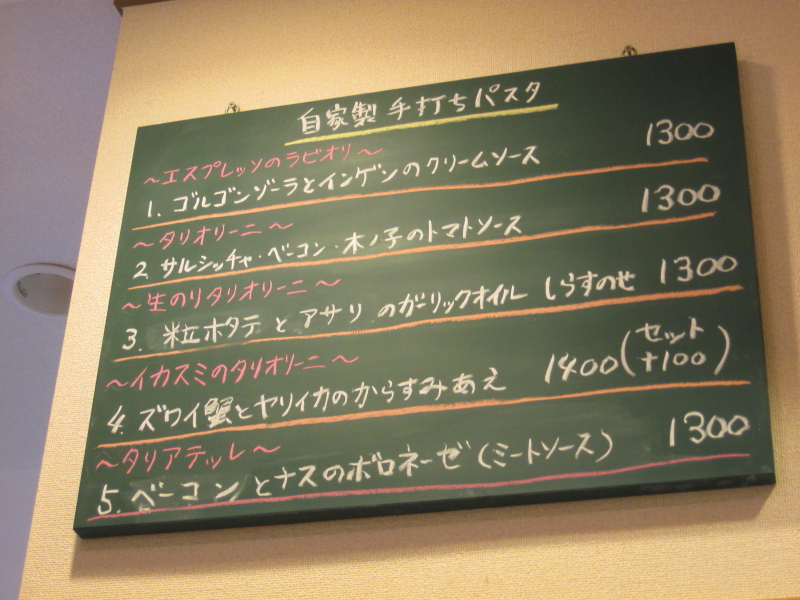 自家製 手打ちパスタ
～エスプレッソのラビオリ～
1. ゴルゴンゾーラとインゲンのクリームソース 1300
～タリオリーニ～
2. サルシッチャ・ベーコン・木ノ子のトマトソース 1300
～生のりタリオリーニ～
3. 粒ホタテとアサリのガーリックオイル しらすのせ 1300
～イカスミのタリオリーニ～
4. ズワイ蟹とヤリイカのからすみあえ 1400(セット+100)
～タリアテッレ～
5. ベーコンとナスのボロネーゼ(ミートソース) 1300